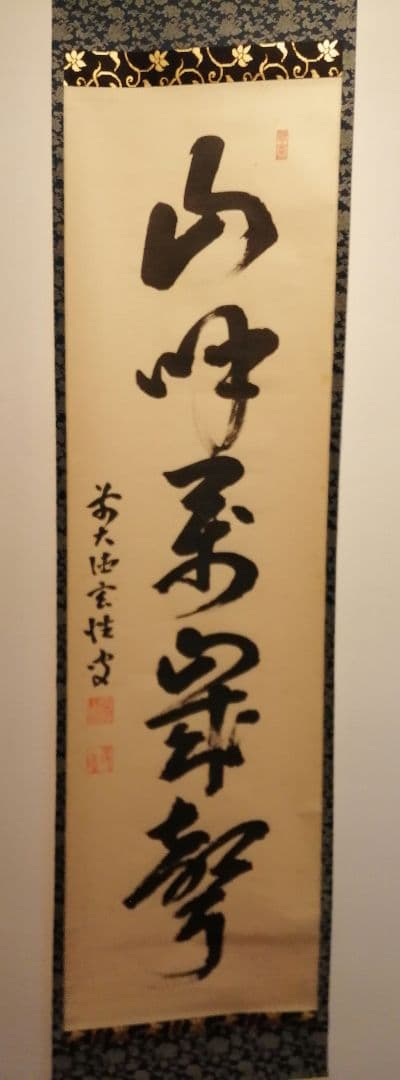 山呼萬歳聲
前大徳玄性